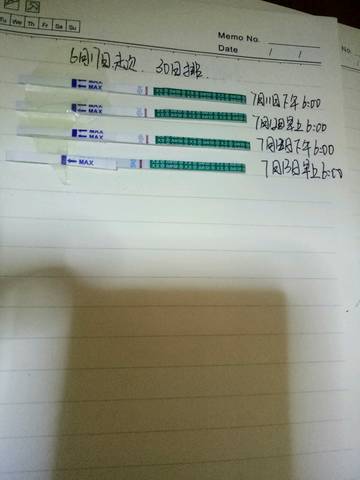 Tu We Th Fr Sa Su
Memo No.
Date / /
6月17日末次 30日排
MAX
MAX
7月11日下午6:00
MAX
MAX
7月12日早上6:00
MAX
MAX
7月12日下午6:00
MAX
7月13日早上6:00